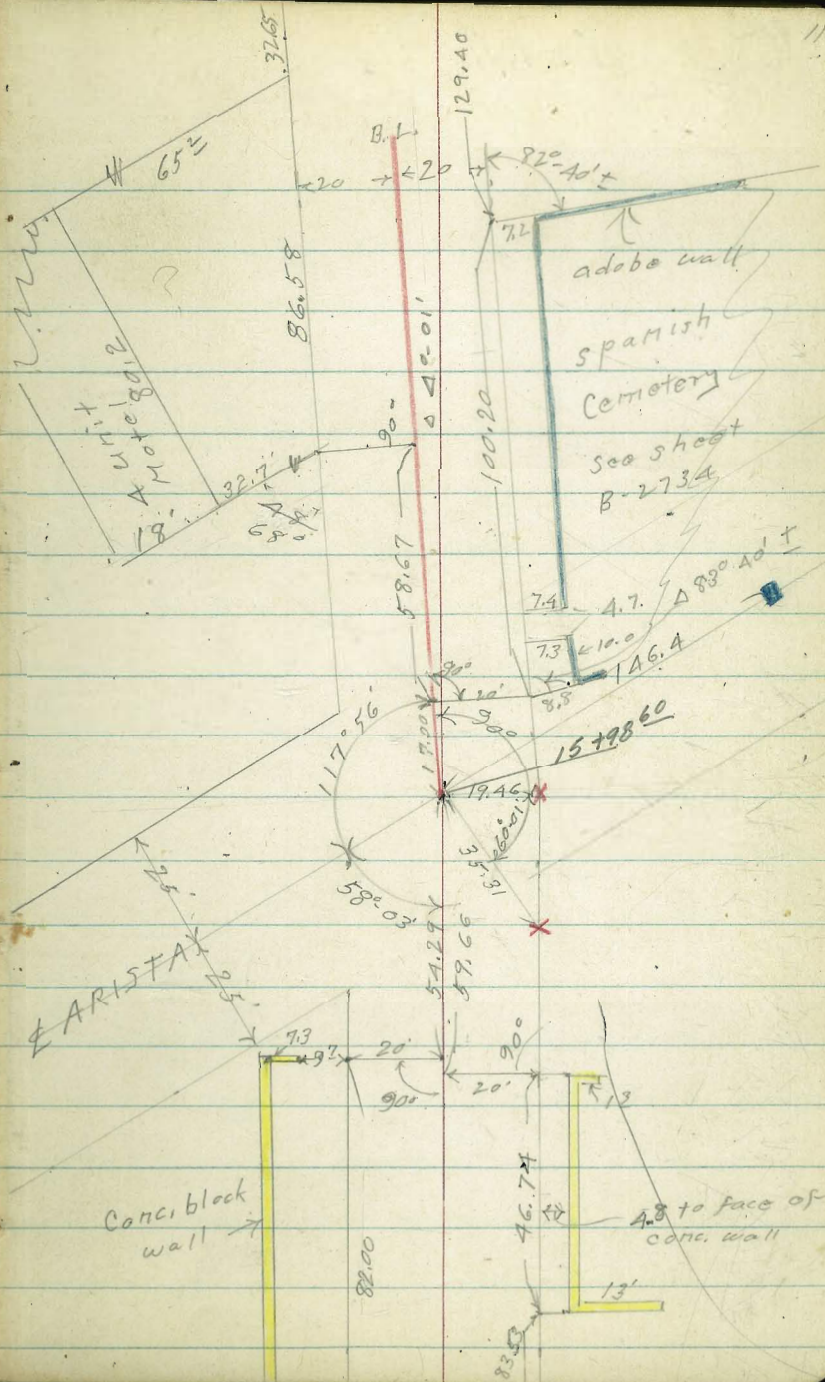 11
32.65
129.40
B.L.
65²
20
20
82°-40' ±
7.2
adobe wall
86.58
Δ 0-01'
Spanish
Cemetery
see sheet
B-2734
100.20
4 unit
Motel 80.2
90°
32.7'
18'
58.67
7.4
4.7
Δ 83° 40' ±
7.3
10.0
146.4
90°
20'
8.8
117° 56'
17.00
90°
15+98⁶⁰
19.46
60°-01'
35.31
58°-03'
54.29
59.66
℄ ARISTA
7.3
9²
20'
90°
90°
20'
13
Conc. block
wall
46.74
4.8 to face of
conc. wall
82.00
13'
83.53